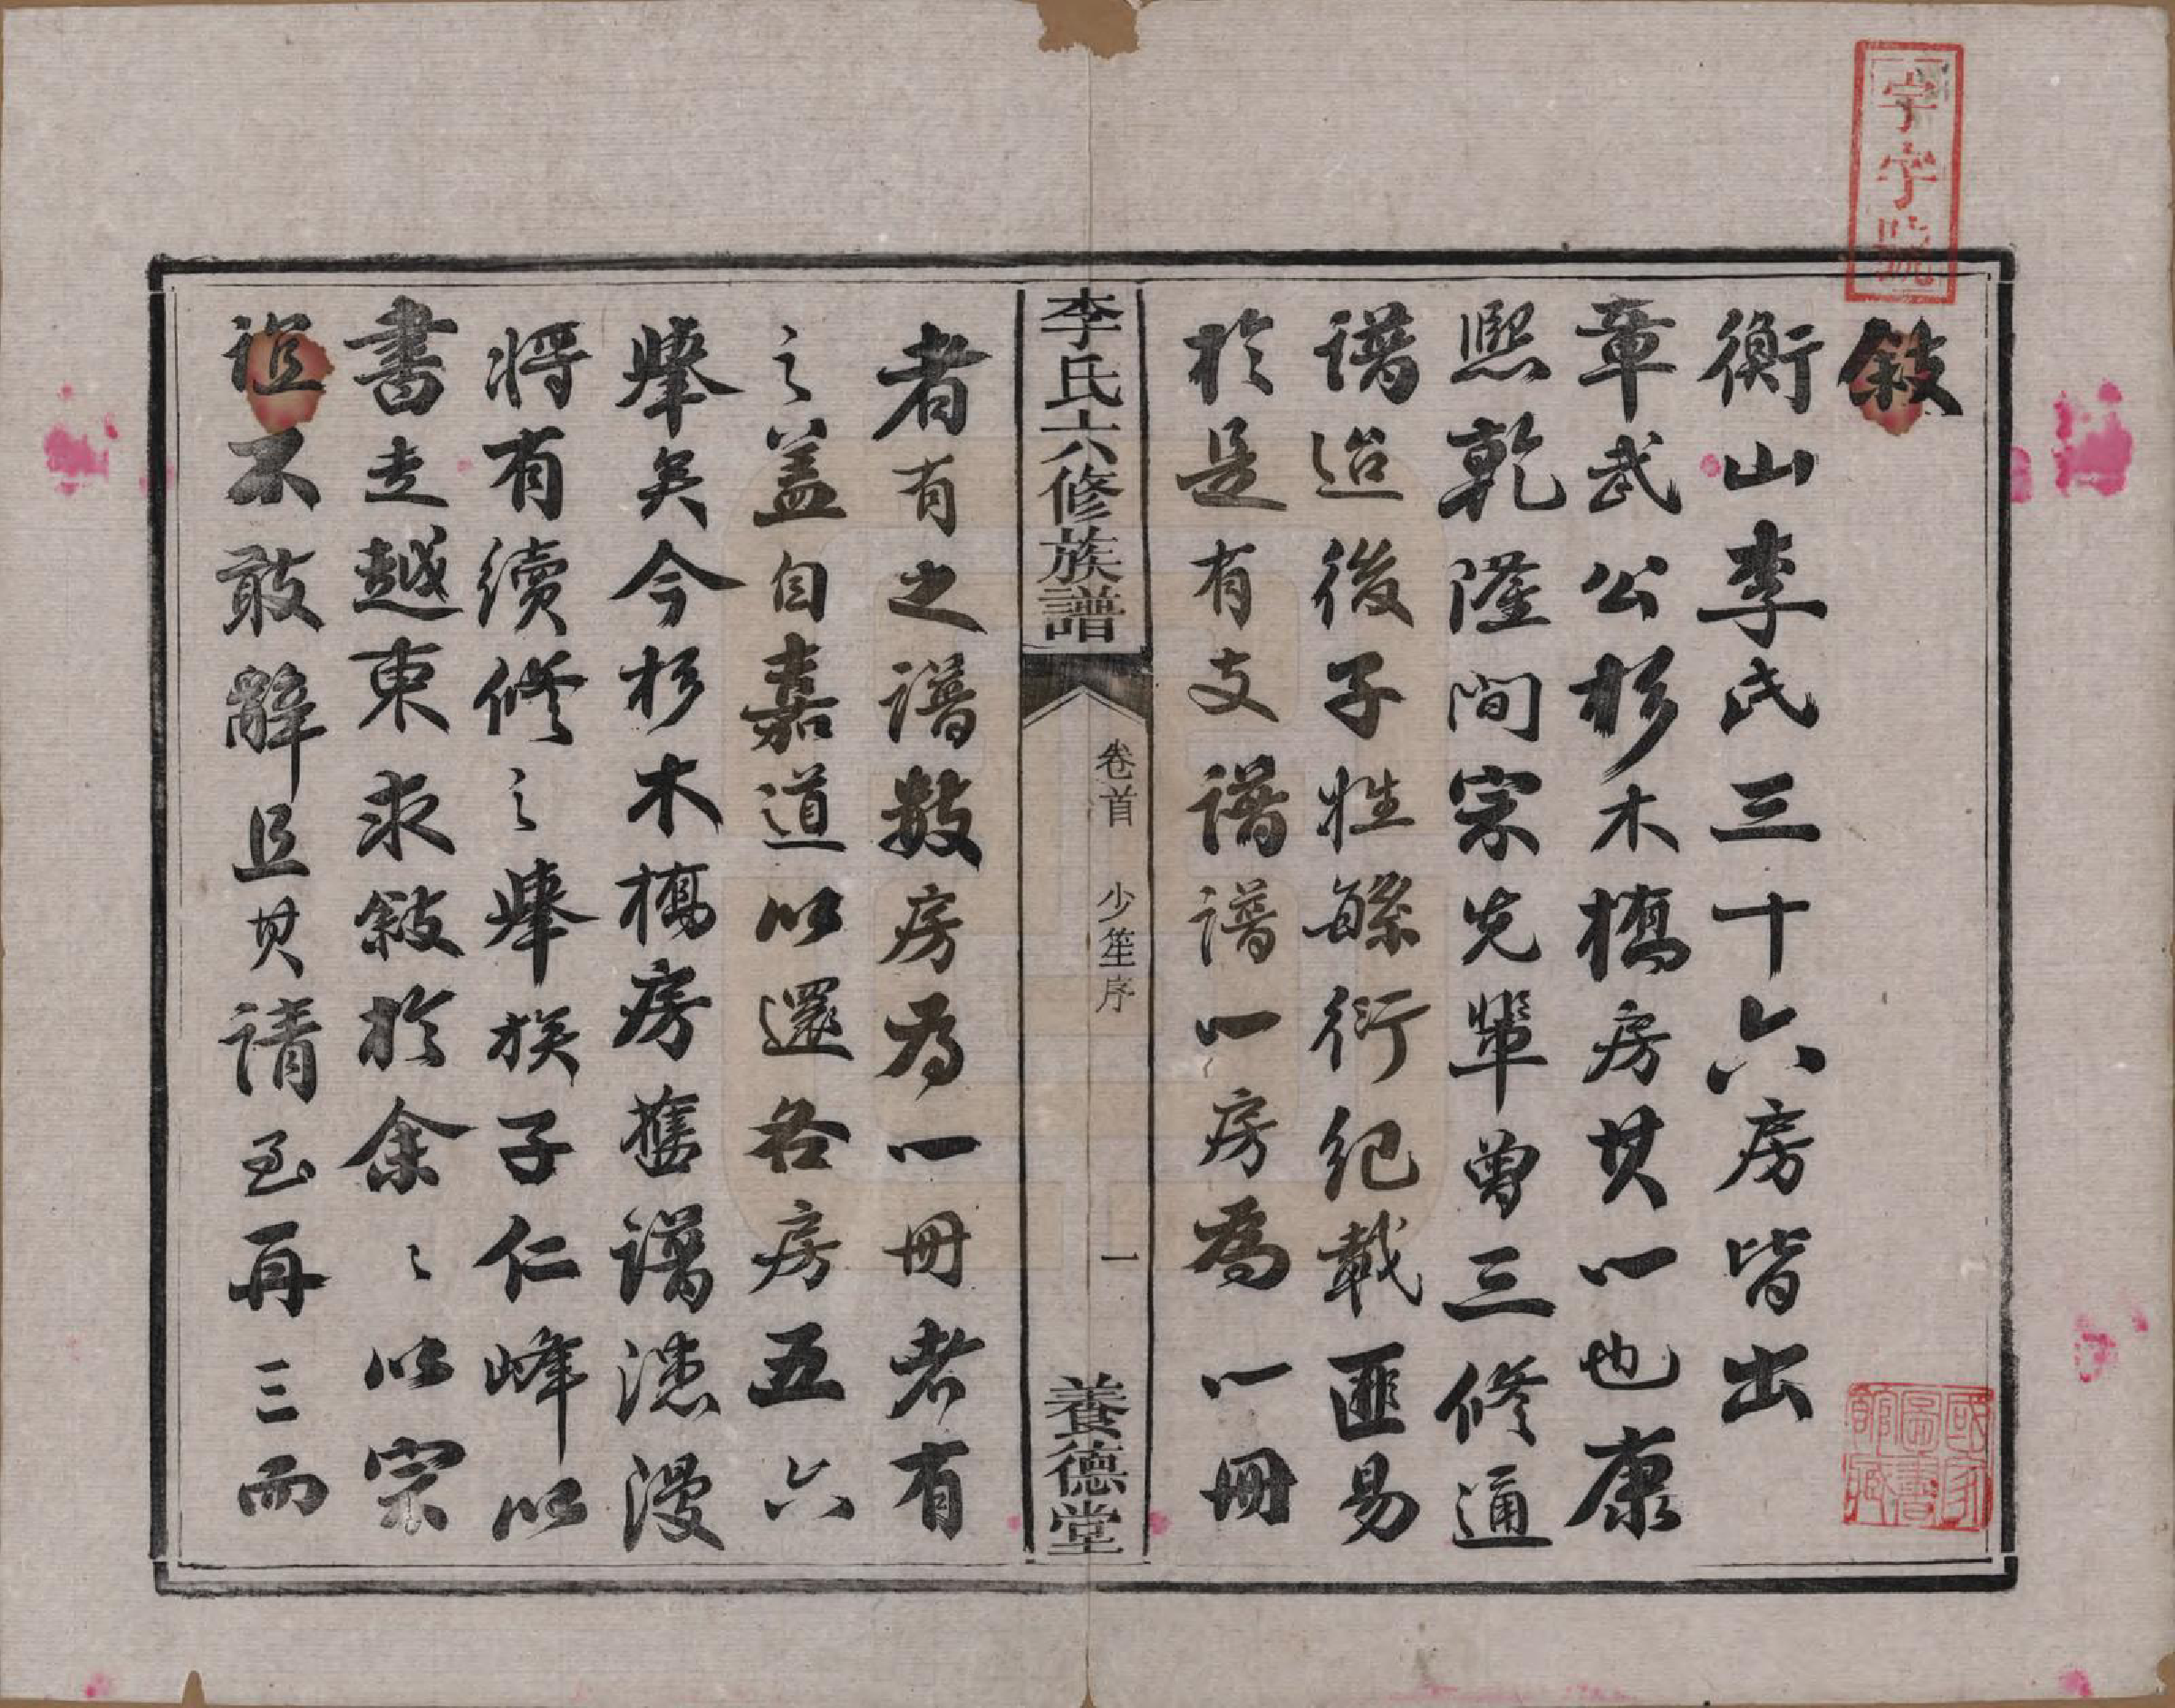 敘
衡山李氏三十六房皆出
章武公杉木橋房其一也康
熙乾隆間宗先輩曾三修通
譜迨後子姓繇衍紀載匪易
於是有支譜譜一房為一冊
者有之譜數房為一冊者有
之蓋自嘉道以還各房五六
舉矣今杉木橋房舊譜漶漫
將有續修之舉族子仁峰以
書走越東求敘於余〻以宗
誼不敢辭且其請至再三而
李氏六修族譜
卷首 少笙序 一
養德堂
字字號
國家圖書館藏